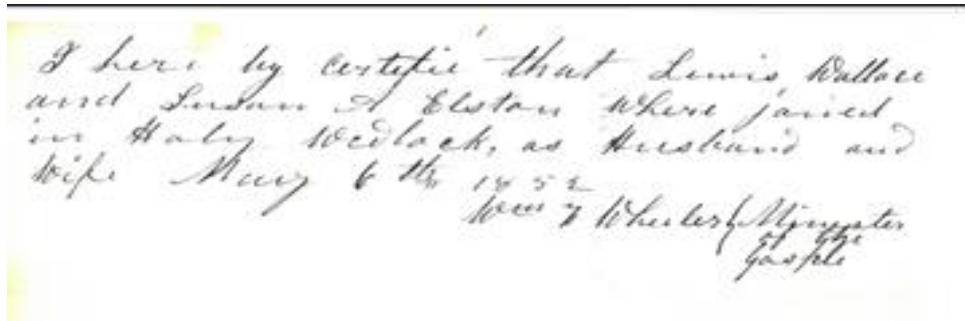 I here by certifie that Lewis Wallace
and Susan A Elston where joined
in Holy Wedlock, as Husband and
Wife May 6th 1852
Wm F Wheeler { Minester
of the
Gosple